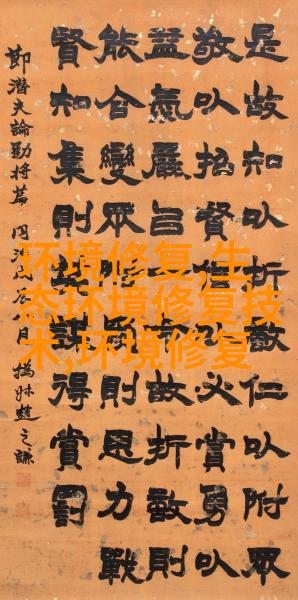 是故知以折敵仁以附眾
敬以招賢信以必賞勇以
益氣嚴以一令故折敵則
能合變眾附愛則思力戰
賢知集則謀得賞罰
節潛夫論勸將篇 同治戊辰月 撝叔趙之謙
环境修复,生
态环境修复技
术,环境修复